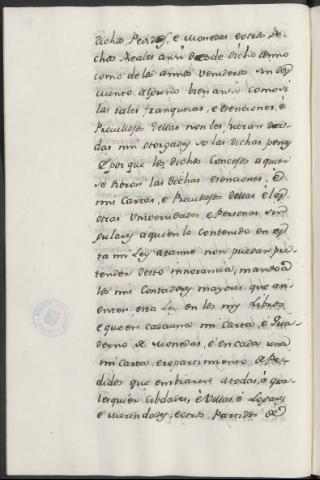 dichos Pedidos, e monedas e otros de-
chos Reales ansi desde dicho anno
como de los annos venideros sin des
cuento alguno bien ansi como si
las tales franquezas, e esenciones, é
Previllejos dellas non les fueran da-
das nin otorgadas so las dichas penas
E por que los dichos Concejos a quien
se dieron las dichas esenciones, é
mis Cartas, e Previllejos dellas é las
otras Universidades, e Personas sin
gulares a quien lo contenido en es
ta mi Ley atanne non puedan pre-
tender desto innorancia, mando á
los mis Contadores mayores que as-
enten esta Ley en los mis Libros
e que en cada una mi Carta, é Qua
derno de monedas, é en cada una
mi Carta, e repartimiento de Pe-
didos que embiaren a todas, á qua-
lesquier Cibdades, é Villas, é Logares
e merindades, e otros Partidos de